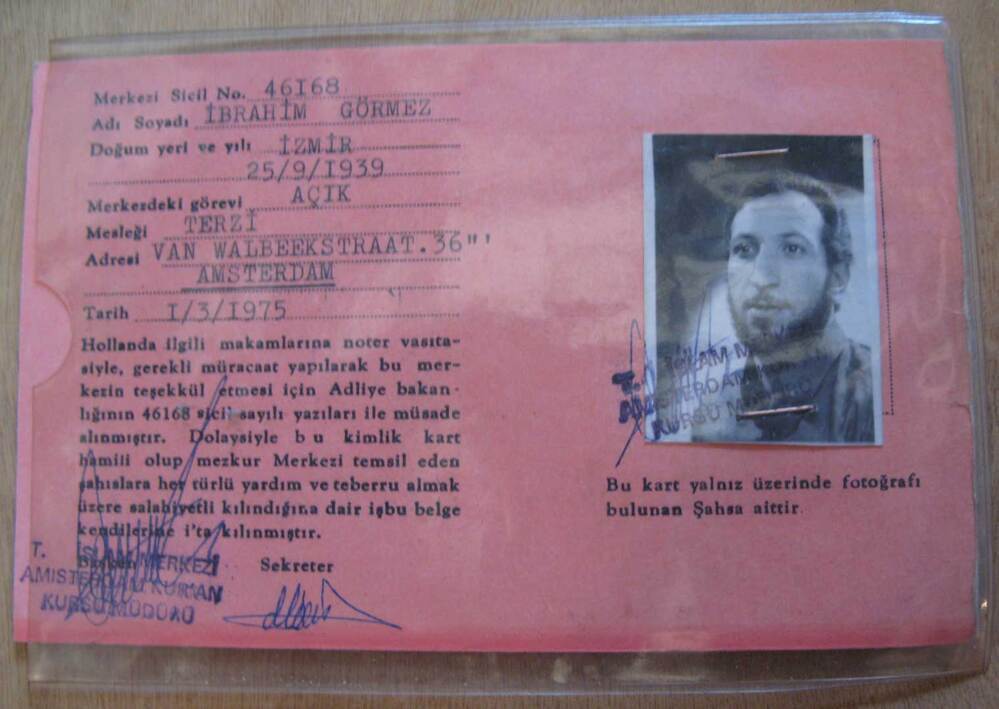 Merkezi Sicil No. 46I68
Adı Soyadı İBRAHİM GÖRMEZ
Doğum yeri ve yılı İZMİR
25/9/I939
Merkezdeki görevi AÇIK
Mesleği TERZİ
Adresi VAN WALBEEKSTRAAT.36"'
AMSTERDAM
Tarih I/3/I975
Hollanda ilgili makamlarına noter vasıta-
siyle, gerekli müracaat yapılarak bu mer-
kezin teşekkül etmesi için Adliye bakan-
lığının 46168 sicil sayılı yazıları ile müsade
alınmıştır. Dolaysiyle bu kimlik kart
hamili olup mezkur Merkezi temsil eden
şahıslara her türlü yardım ve teberru almak
üzere salahiyetli kılındığına dair işbu belge
kendilerine i'ta kılınmıştır.
Başkan Sekreter
T. İSLAM MERKEZİ
AMİSTERDAM KUR'AN
KURSU MÜDÜRÜ
İSLAM MERKEZİ
AMİSTERDAM KUR'AN
KURSU MÜDÜRÜ
Bu kart yalnız üzerinde fotoğrafı
bulunan Şahsa aittir.